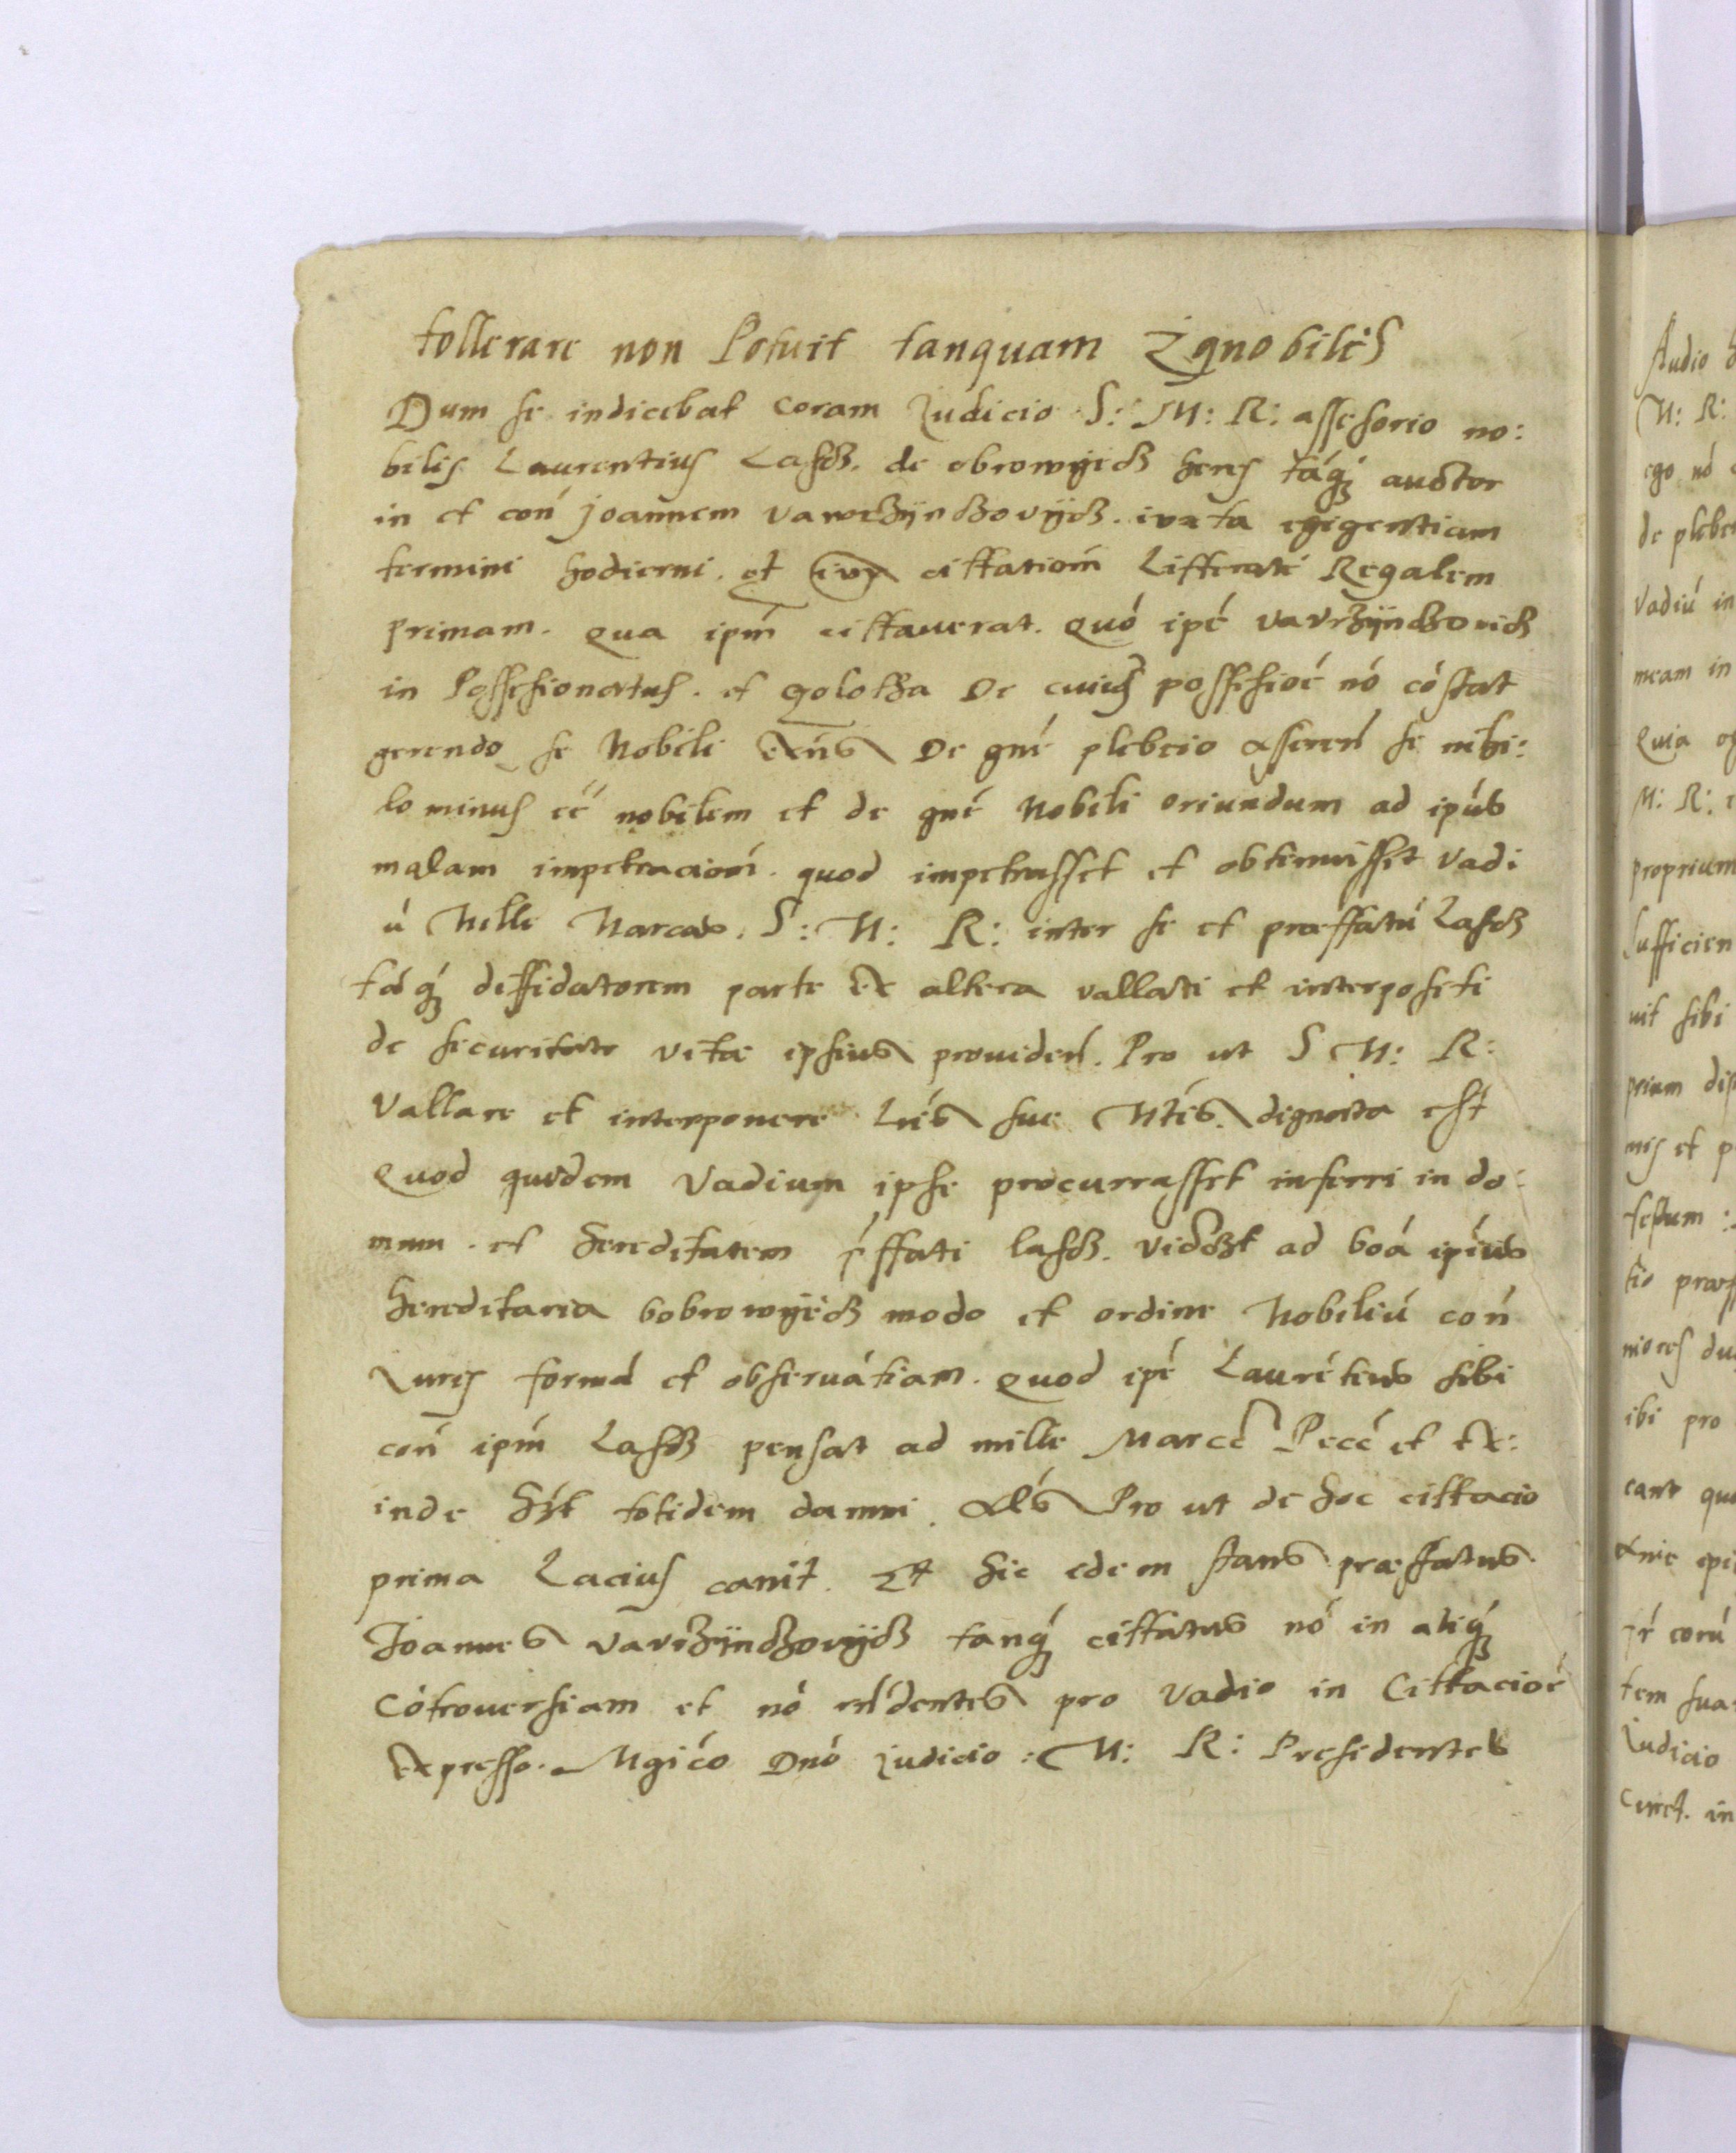 tollerare non Potuit tanquam Ignobilis
Dum se indicebat coram Judicio S: M: R: assesorio no:
bilis Laurentius Lascz. de obrowyecz heres tāq̄ auctor
in et con̄ Joannem vawrzyndzovycz. iuxta exigentiam
termini hodierni. et iux cittatiom̄ Litteratē Regalem
primam. qua ipm̄ cittauerat. quō ipē vavrzyndzovicz
in Possesionatus. et golotha De cuius possesioē nō cōstat
gerendo se Nobili De gn̄e plebeio asseren̄ se nihi:
lo minus eē nobilem et de gn̄e Nobili oriundum ad ipīus
malam impetraciom̄. quod impetrasset et obtenuisset vadi
ū Mille Marcas. S: M: R: inter se et præffatū Lascz
tāq̄ diffidatorem parte ex altera vallati et interpositi
de securitate vitæ ipsius prouiden̄. Pro ut S M: R:
Vallare et interponere Lrīs sue Mtīs dignata est
Quod quidem Vadium ipse procurrasset inferri in do:
mum. et hereditatem p̄ffati lascz. vidczt ad boā ipīus
hereditaria bobrowyecz modo et ordine Nobiliū con̄
Juris formā et obseruātiam. quod ipē Laurētius sibi
con̄ ipm̄ Lascz pensat ad mille Marcē Pecē et ex:
inde totidem damni. Als Pro ut de hoc cittacio
prima Lacius canit. Et hic idem stans præffatus
Joannes vavrzyndzovycz tanq̄ cittatus nō in aliq̄
cōtrouersiam et nō rn̄dentes pro Vadio in Cittacioē
expresso. Mgīco Dnō Judicio: M: R: Presidentes
Audio
M: R:
ego nō
de plebe
Vadiū in
meam in
Quia
M: R:
proprium
sufficien
uit sibi
prium
nis et p
festum:
tio præf
niores du
ibi pro
cant qu
corū
tem sua
Judicio
in